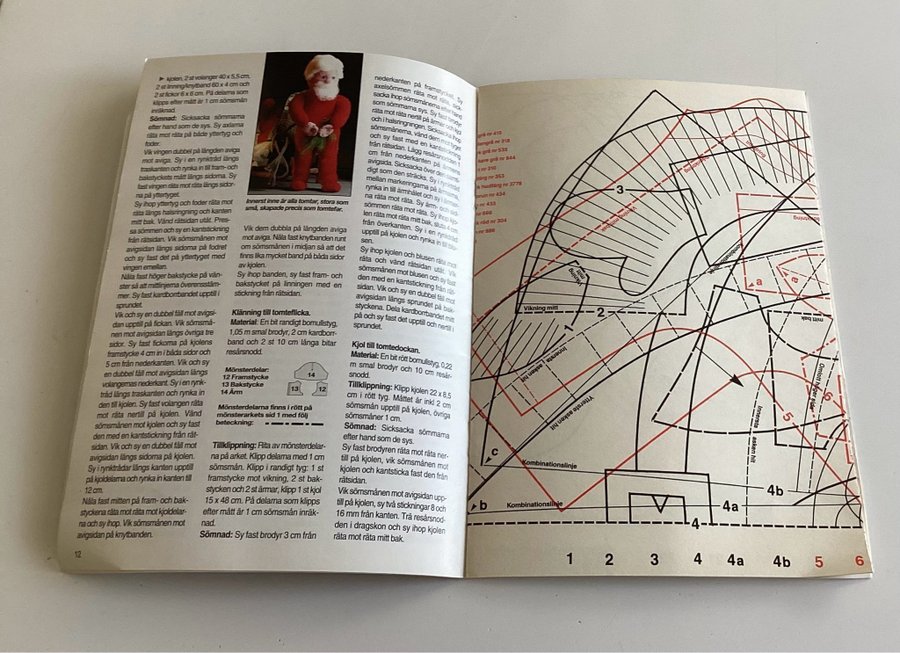 ► kjolen, 2 st volanger 40 x 5,5 cm,
2 st linning/knytband 60 x 4 cm och
2 st fickor 6 x 6 cm. På delarna som
klipps efter mått är 1 cm sömsmån
inräknad.
Sömnad: Sicksacka sömmarna
efter hand som de sys. Sy axlarna
räta mot räta på både yttertyg och
foder.
Vik vingen dubbel på längden aviga
mot aviga. Sy i en rynktråd längs
traskanten och rynka in till fram- och
bakstyckets mått längs sidorna. Sy
fast vingen räta mot räta längs sidor-
na på yttertyget.
Sy ihop yttertyg och foder räta mot
räta längs halsringning och kanten
mitt bak. Vänd rätsidan utåt. Pres-
sa sömmen och sy en kantstickning
från rätsidan. Vik sömsmånen mot
avigsidan längs sidorna på fodret
och sy fast det på yttertyget med
vingen emellan.
Nåla fast höger bakstycke på vän-
ster så att mittlinjerna överensstäm-
mer. Sy fast kardborrband upptill i
sprundet.
Vik och sy en dubbel fåll mot avigsi-
dan upptill på fickan. Vik sömsmå-
nen mot avigsidan längs övriga tre
sidor. Sy fast fickorna på kjolens
framstycke 4 cm in i båda sidor och
5 cm från nederkanten. Vik och sy
en dubbel fåll mot avigsidan längs
volangernas nederkant. Sy i en rynk-
tråd längs traskanten och rynka in
den till kjolen. Sy fast volangen räta
mot räta nertill på kjolen. Vänd
sömsmånen mot kjolen och sy fast
den med en kantstickning från rät-
sidan. Vik och sy en dubbel fåll mot
avigsidan längs sidorna på kjolen.
Sy i rynktrådar längs kanten upptill
på kjoldelarna och rynka in kanten till
12 cm.
Nåla fast mitten på fram- och bak-
styckena räta mot räta mot kjoldelar-
na och sy ihop. Vik sömsmånen mot
avigsidan på knytbanden.
12
Innerst inne är alla tomtar, stora som
små, skapade precis som tomtefar.
Vik dem dubbla på längden aviga
mot aviga. Nåla fast knytbanden runt
om sömsmånen i midjan så att det
finns lika mycket band på båda sidor
av kjolen.
Sy ihop banden, sy fast fram- och
bakstycket på linningen med en
stickning från rätsidan.
Klänning till tomteflicka.
Material: En bit randigt bomullstyg,
1,05 m smal brodyr, 2 cm kardborr-
band och 2 st 10 cm långa bitar
resårsnodd.
Mönsterdelar:
12 Framstycke
13 Bakstycke
14 Ärm
14
13
12
Mönsterdelarna finns i rött på
mönsterarkets sid 1 med följ
beteckning:
Tillklippning: Rita av mönsterdelar-
na på arket. Klipp delarna med 1 cm
sömsmån. Klipp i randigt tyg: 1 st
framstycke mot vikning, 2 st bak-
stycken och 2 st ärmar, klipp 1 st kjol
15 x 48 cm. På delarna som klipps
efter mått är 1 cm sömsmån inräk-
nad.
Sömnad: Sy fast brodyr 3 cm från
nederkanten på framstycket. Sy
axelsömmen räta mot räta, sick-
sacka ihop sömsmånerna efter hand
som sömmarna sys. Sy fast brodyr
räta mot räta nertill på ärmar och kjol
och i halsringningen. Sicksacka ihop
sömsmånerna, vänd dem mot tyget
och sy fast med en kantstickning
från rätsidan. Lägg resårsnodden 1
cm från nederkanten på ärmens
avigsida. Sicksacka över den sam-
digt som den sträcks. Sy i rynktråd
mellan markeringarna på ärmarna,
rynka in till ärmhålet och sy i ärmar-
na räta mot räta. Sy ärm- och sid-
sömmen räta mot räta. Sy ihop kjo-
len räta mot räta mitt bak, sluta 4 cm
från överkanten. Sy i en rynktråd
upptill på kjolen och rynka in till blu-
sen.
Sy ihop kjolen och blusen räta mot
räta och vänd rätsidan utåt. Vik
sömsmånen mot blusen och sy fast
den med en kantstickning från rätsi-
dan. Vik och sy en dubbel fåll mot
avigsidan längs sprundet på bak-
styckena. Dela kardborrbandet mitt
på och sy fast det upptill och nertill i
sprundet.
Kjol till tomtedockan.
Material: En bit rött bomullstyg, 0,22
m smal brodyr och 10 cm resår-
snodd.
Tillklippning: Klipp kjolen 22 x 8,5
cm i rött tyg. Måttet är inkl 2 cm
sömsmån upptill på kjolen, övriga
sömsmåner 1 cm.
Sömnad: Sicksacka sömmarna
efter hand som de sys.
Sy fast brodyren räta mot räta ner-
till på kjolen, vik sömsmånen mot
kjolen och kantsticka fast den från
rätsidan.
Vik sömsmånen mot avigsidan upp-
till på kjolen, sy två stickningar 8 och
16 mm från kanten. Trä resårsnod-
den i dragskon och sy ihop kjolen
räta mot räta mitt bak.
3
Vikning mitt
2
1
Innersta asken hit
Yttersta asken hit
Kombinationslinje
mitt bak
a
a
5
5
6
c
Kombinationslinje
b
Kombinationslinje
4b
4a
4
1 2 3 4 4a 4b 5 6